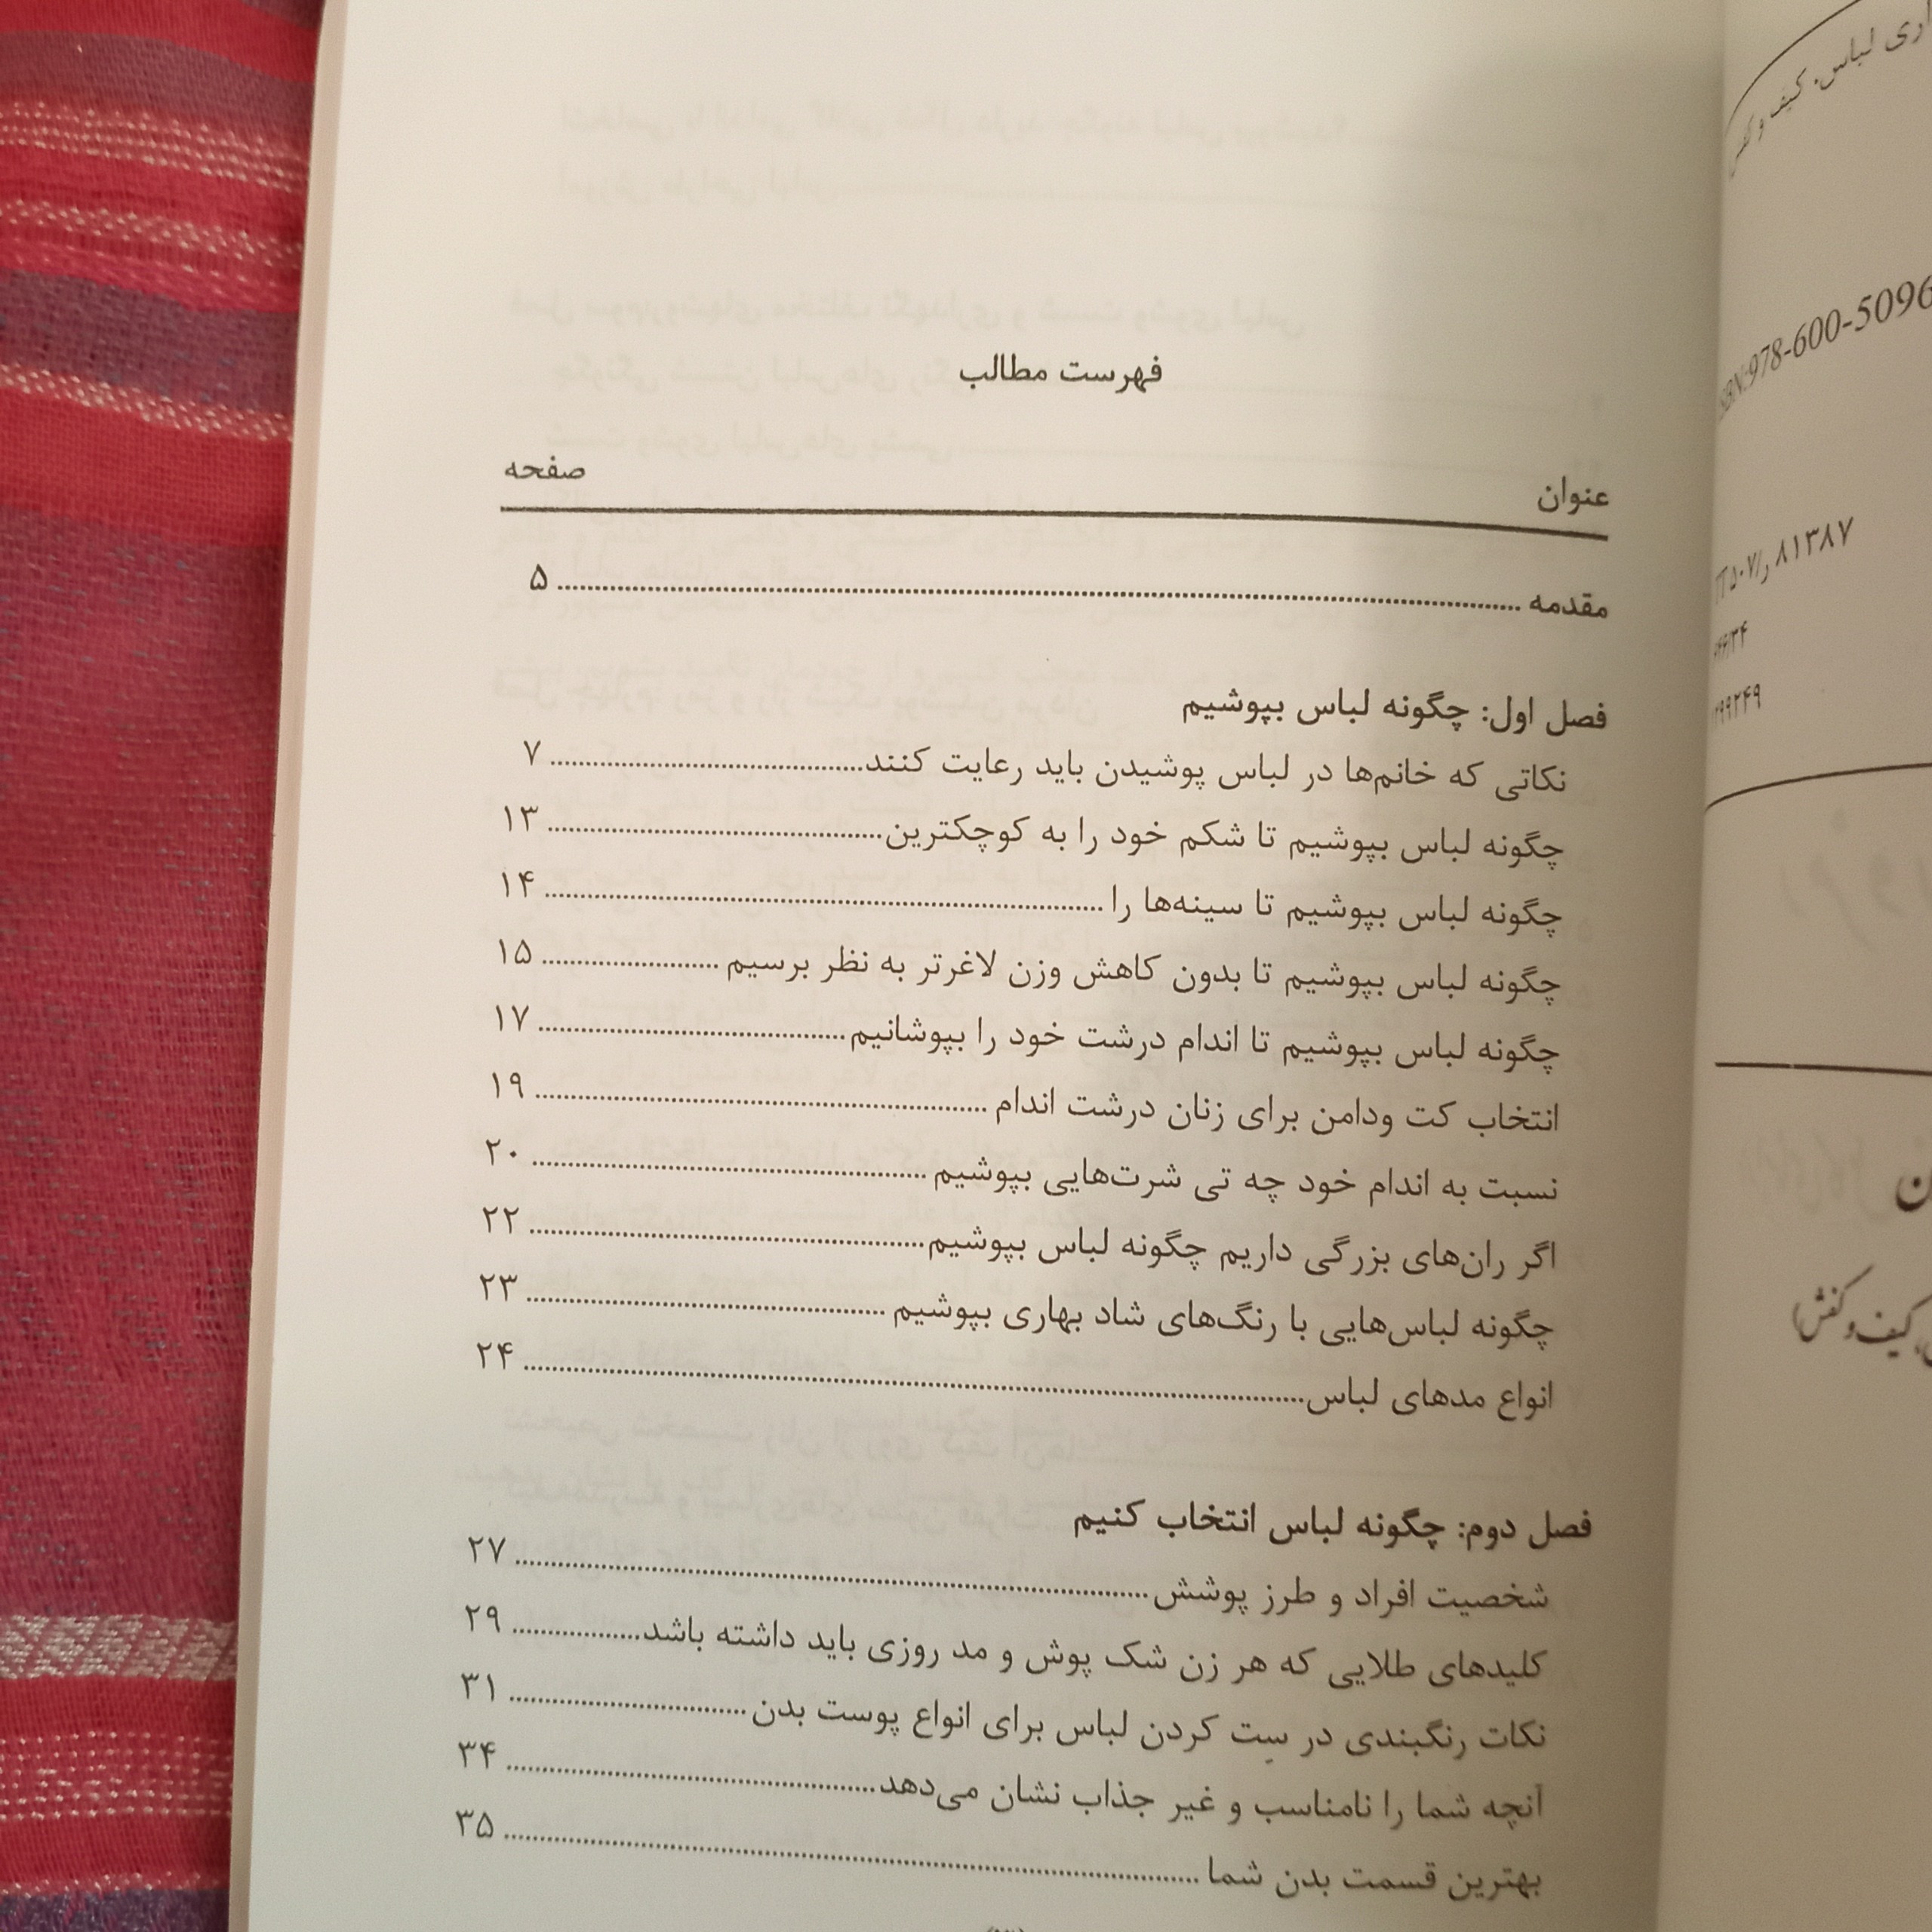 فهرست مطالب
عنوان صفحه
مقدمه ........ ۵
فصل اول: چگونه لباس بپوشیم
نکاتی که خانم‌ها در لباس پوشیدن باید رعایت کنند ........ ۷
چگونه لباس بپوشیم تا شکم خود را به کوچکترین ........ ۱۳
چگونه لباس بپوشیم تا سینه‌ها را ........ ۱۴
چگونه لباس بپوشیم تا بدون کاهش وزن لاغرتر به نظر برسیم ........ ۱۵
چگونه لباس بپوشیم تا اندام درشت خود را بپوشانیم ........ ۱۷
انتخاب کت ودامن برای زنان درشت اندام ........ ۱۹
نسبت به اندام خود چه تی شرت‌هایی بپوشیم ........ ۲۰
اگر ران‌های بزرگی داریم چگونه لباس بپوشیم ........ ۲۲
چگونه لباس‌هایی با رنگ‌های شاد بهاری بپوشیم ........ ۲۳
انواع مدهای لباس ........ ۲۴
فصل دوم: چگونه لباس انتخاب کنیم
شخصیت افراد و طرز پوشش ........ ۲۷
کلیدهای طلایی که هر زن شک پوش و مد روزی باید داشته باشد ........ ۲۹
نکات رنگبندی در سِت کردن لباس برای انواع پوست بدن ........ ۳۱
آنچه شما را نامناسب و غیر جذاب نشان می‌دهد ........ ۳۴
بهترین قسمت بدن شما ........ ۳۵
لباس، کیف و
978-600-5096
۸۱۳۸۷
کیف و کفش)